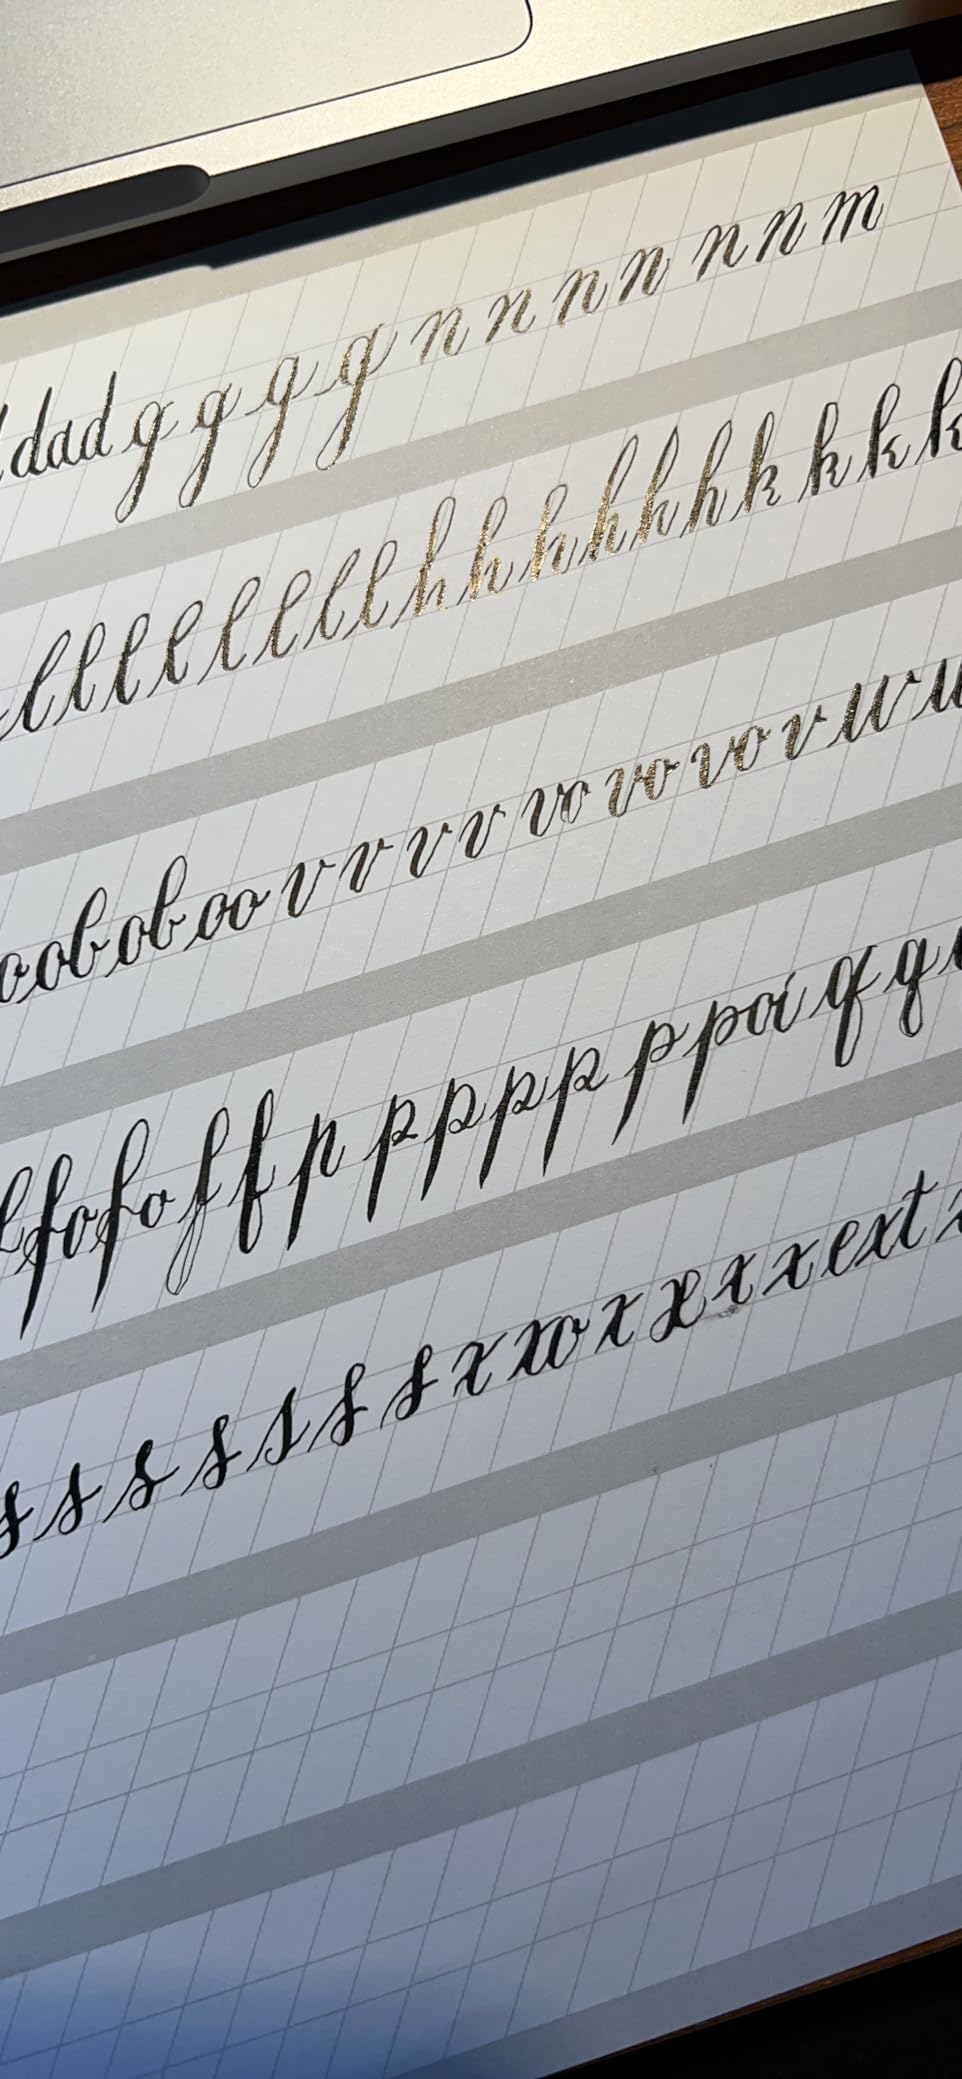 dad g g g g n n n n n n m
l l l l l l l l h h h h h h k k k k
ooboboo v v v v vo vo vo v w
fofo f f p p p p p p pai q q
s s s s s s s x xo x x x x ext